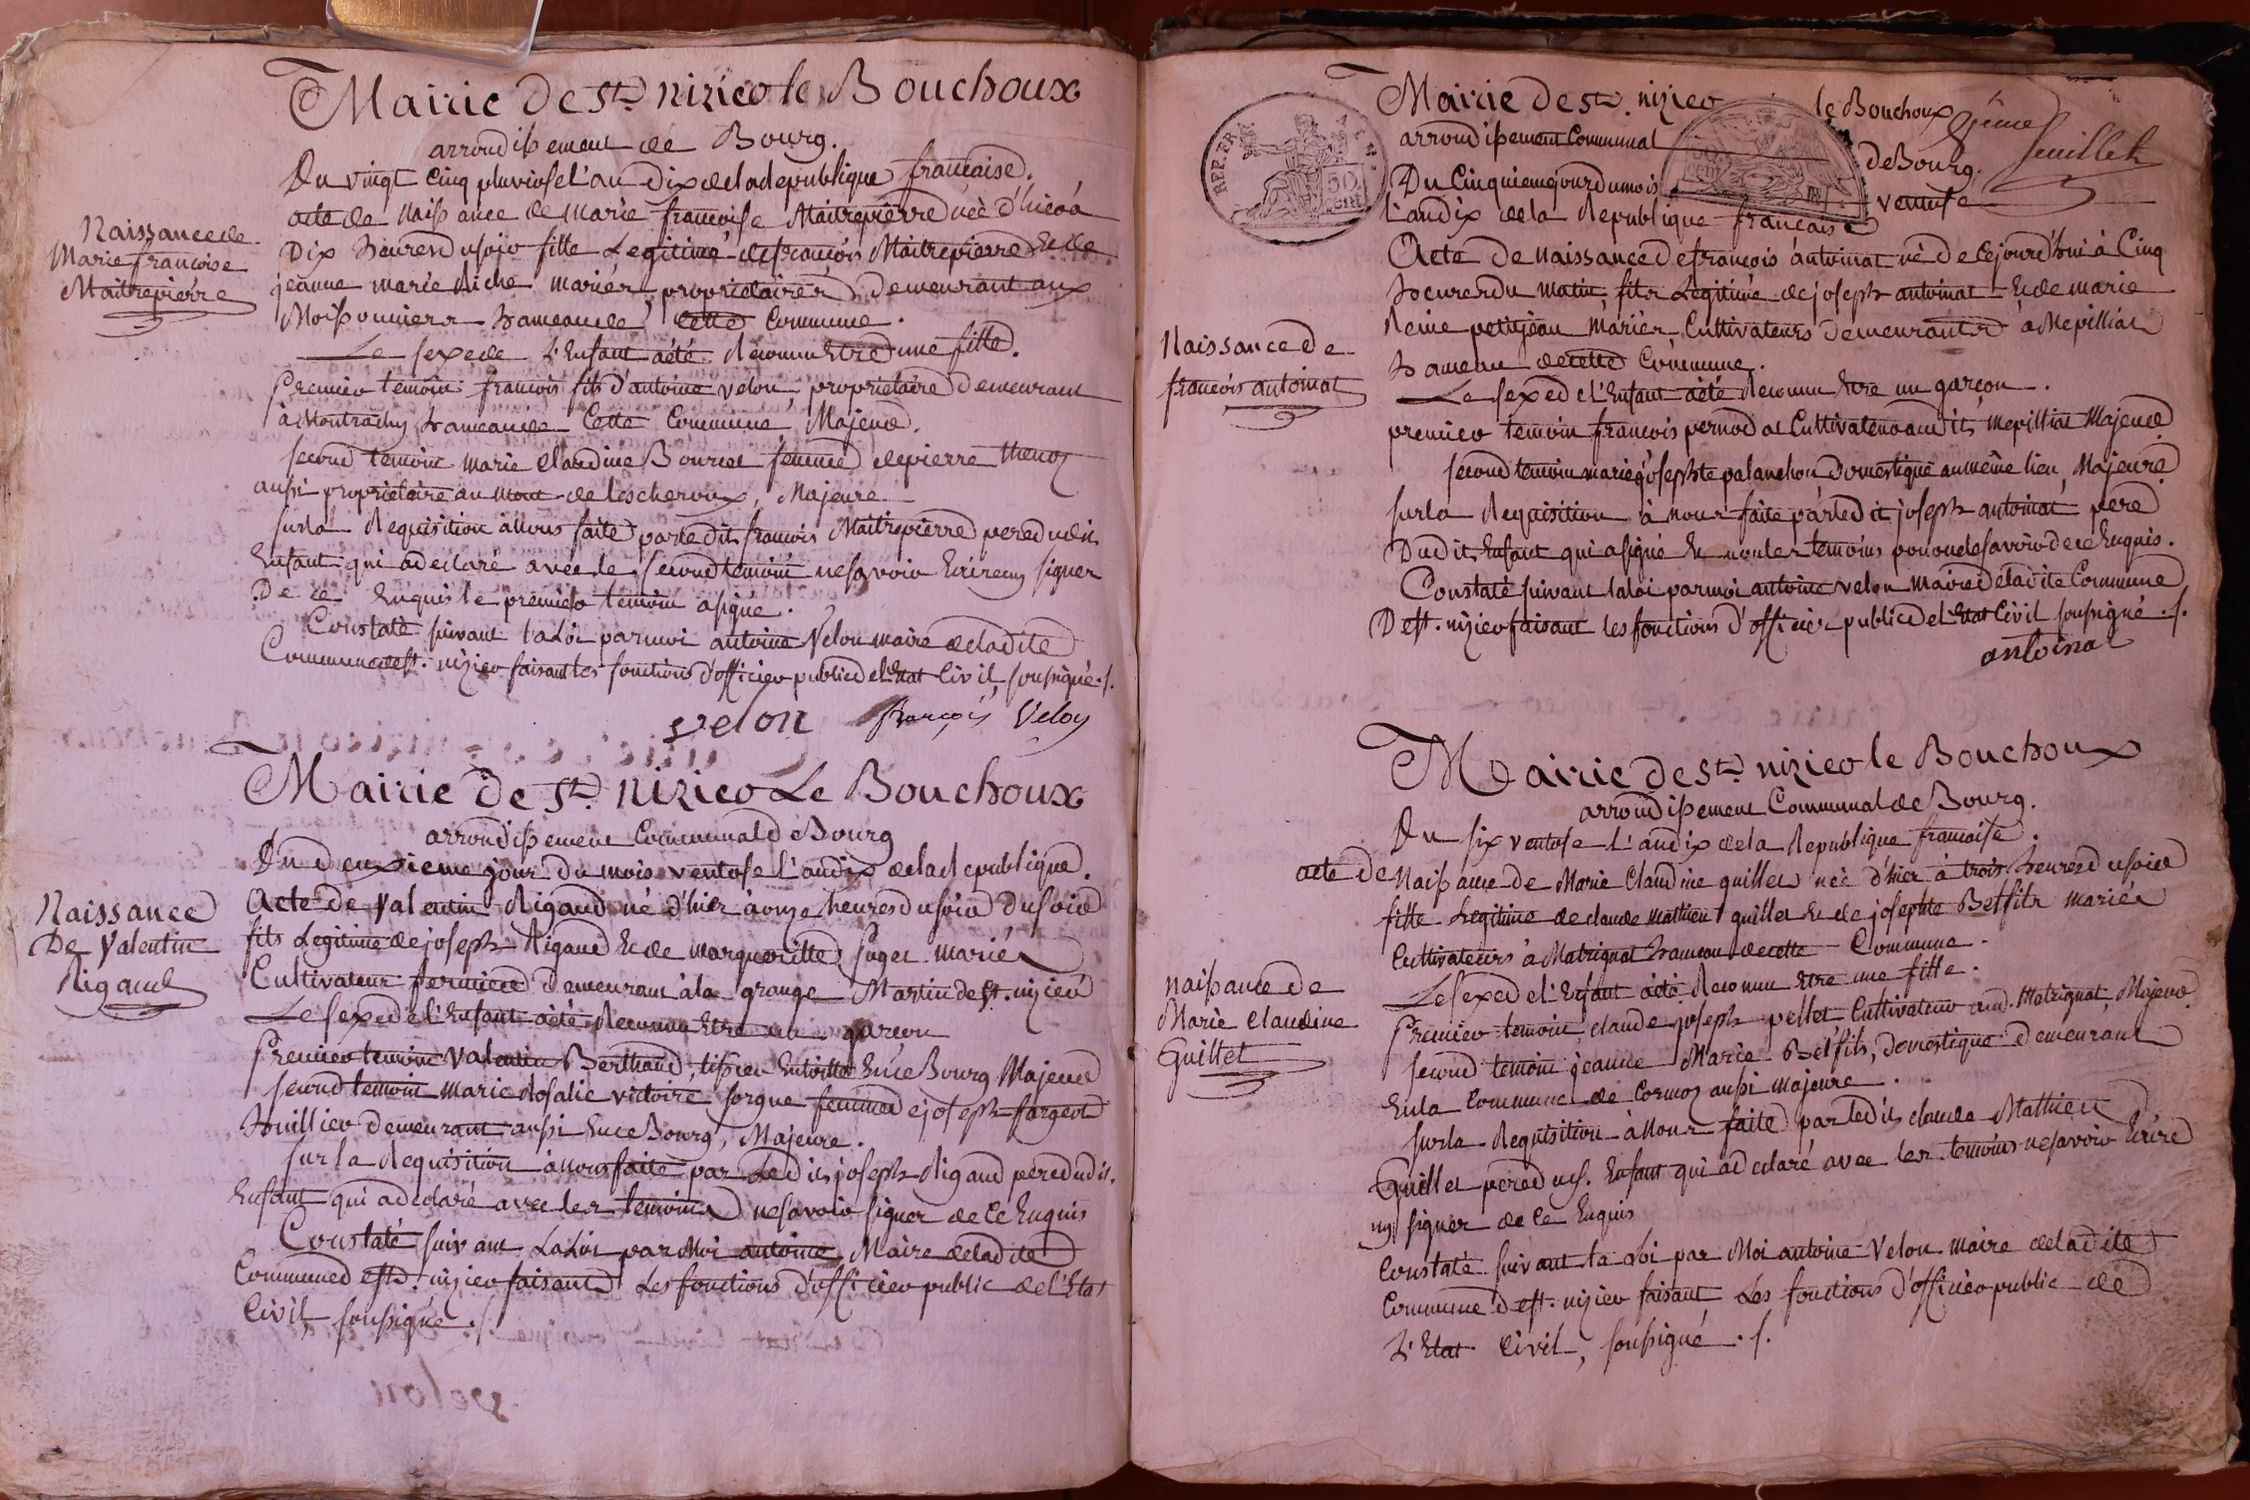 Mairie de St. nizier le Bouchoux
arrondissement de Bourg.
Du vingt cinq pluviose l'an dix de la republique francaise.
acte de naissance de marie francoise Maitrepierre née d'hier à
Dix heures du soir fille Legitime de francois Maitrepierre Et de
jeanne marie Riche mariés, proprietaires demeurant aux
Moissonniers hameau de cette Commune.
Le sexe de L'Enfant a été Reconnu Etre une fille.
Premier temoin francois fils d'antoine velon, proprietaire Demeurant
à Montrachy hameau de Cette Commune, Majeur.
second temoin marie claudine Bourcet femme de pierre
aussi proprietaire au mont de lescheroux, Majeure.
sur la Requisition à nous faite par ledit francois Maitrepierre pere dudit
Enfant qui a declaré avec le second temoin ne savoir Ecrire ny signer
De ce Enquis le premier temoin a signé.
Constaté suivant la Loi par moi antoine Velon maire de ladite
Commune de st. nizier faisant les fonctions d'officier public de l'Etat Civil soussigné ./.
velon françois Velon
Naissance de
Marie francoise
Maitrepierre
Mairie de St. nizier Le Bouchoux
arrondissement Communal de Bourg
Du deuxieme jour du mois ventose l'an dix de la Republique.
Acte de valentin Rigaud né d'hier à onze heures du soir du soir
fils Legitime de joseph Rigaud Et de margueritte Puget mariés
Cultivateur fermiers demeurant à la grange Martin de st. nizier
Le sexe de l'Enfant a été Reconnu Etre un garcon
Premier temoin Valentin Berthaud, tissier Entoille En ce Bourg Majeur
second temoin marie Rosalie victoire sorgue femme de joseph fargeot
huillier demeurant aussi En ce Bourg, Majeure.
sur la Requisition à nous faite par Ledit joseph Rigaud pere dudit
Enfant qui a declaré avec les temoins ne savoir signer de Ce Enquis
Constaté suivant La Loi par Moi antoine Maire de ladite
Commune de st. nizier faisant Les fonctions d'officier public de l'Etat
Civil soussigné ./.
Naissance
De Valentin
Rigaud
Mairie de St. nizier le Bouchoux
9eme feuillet
arrondissement Communal de Bourg.
Du Cinquieme jour du mois ventose
L'an dix de la Republique francaise
Acte de naissance de francois antoinat né de Cejourd'hui à Cinq
heures du matin, fils Legitime de joseph antoinat Et de marie
Reine petitjean Mariés Cultivateurs Demeurants à Mepilliat
hameau de cette Commune.
Le sexe de l'Enfant a été Reconnu Etre un garcon.
premier temoin francois pernodat Cultivateur audit Mepilliat Majeur
second temoin marie josephte palanchon Domestique au même lieu, Majeure
sur la Requisition à nous faite par ledit joseph antoinat pere
Dudit Enfant qui a signé Et non les temoins pour ne le savoir de ce Enquis.
Constaté suivant la loi par moi antoine velon maire de ladite Commune
De st. nizier faisant les fonctions d'officier public de l'Etat Civil soussigné ./.
antoinat
Naissance de
francois antoinat
Mairie de St. nizier le Bouchoux
arrondissement Communal de Bourg.
Du six ventose l'an dix de la Republique francaise.
acte de Naissance de Marie Claudine guillet née d'hier à trois heures du soir
fille Legitime de claude mathieu guillet Et de josephte Belfils mariés
Cultivateurs à Matrignat hameau de cette Commune.
Le sexe de l'Enfant a été Reconnu Etre une fille.
Premier temoin, claude joseph pellet Cultivateur aud. Matrignat, Majeur
second temoin jeanne Marie Belfils, domestique demeurant
En la Commune de Cormoz aussi majeure.
sur la Requisition à Nous faite par ledit claude Mathieu
Guillet pere dud. Enfant qui a declaré avec les temoins ne savoir Ecrire
ny signer de Ce Enquis
Constaté suivant la Loi par Moi antoine Velon maire de ladite
Commune de st. nizier faisant Les fonctions d'officier public de
L'Etat Civil, soussigné ./.
naissance de
Marie Claudine
Guillet